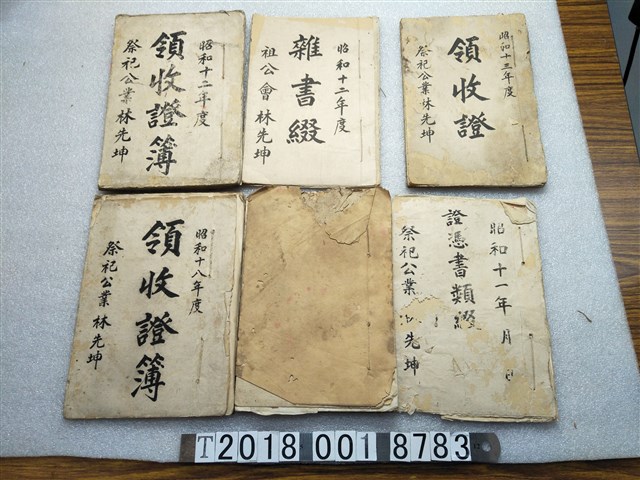 昭和十二年度
領收證簿
祭祀公業 林先坤
昭和十二年度
雜書綴
祖公會 林先坤
昭和十三年度
領收證
祭祀公業林先坤
昭和十八年度
領收證簿
祭祀公業 林先坤
昭和十一年 月
證憑書類綴
祭祀公業 先坤
T2018 001 8783